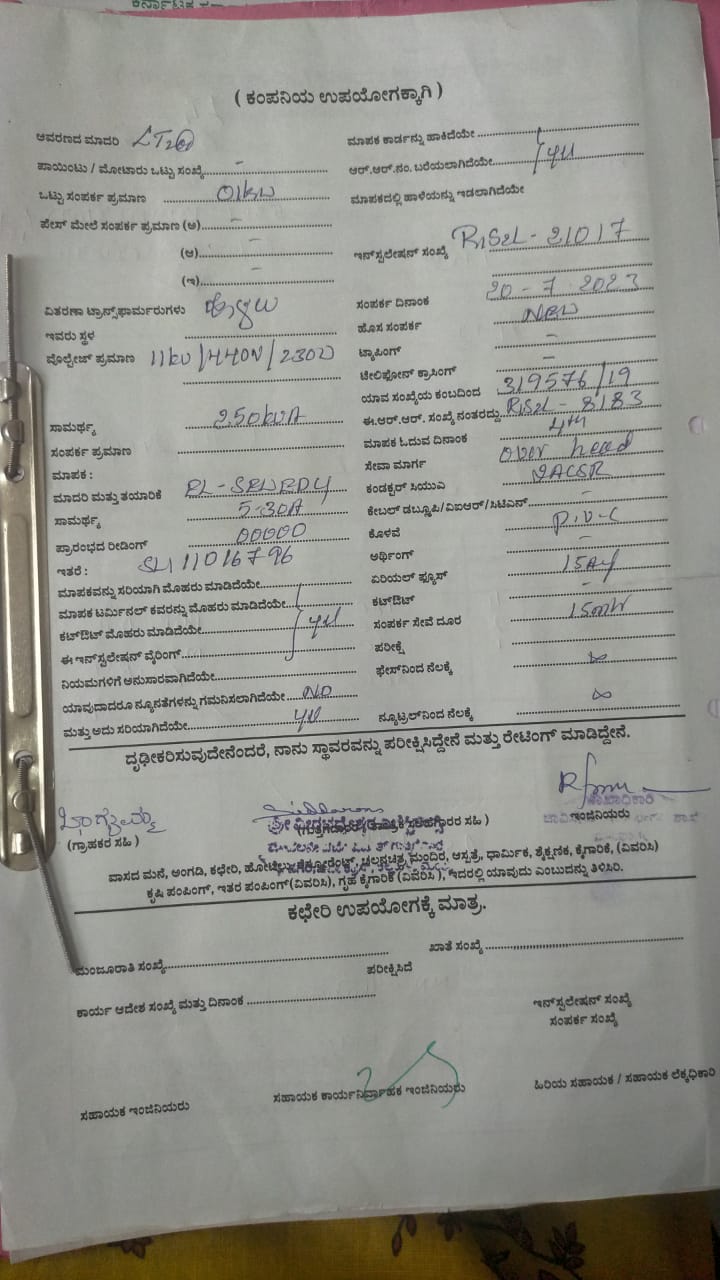 ( ಕಂಪನಿಯ ಉಪಯೋಗಕ್ಕಾಗಿ )
ಆವರಣದ ಮಾದರಿ
ಪಾಯಿಂಟು / ಮೋಟಾರು ಒಟ್ಟು ಸಂಖ್ಯೆ.......... -
ಒಟ್ಟು ಸಂಪರ್ಕ ಪ್ರಮಾಣ 01kw
ಪೇಸ್ ಮೇಲೆ ಸಂಪರ್ಕ ಪ್ರಮಾಣ (ಅ) -
(ಆ) -
(ಇ) -
ವಿತರಣಾ ಟ್ರಾನ್ಸ್‌ಫಾರ್ಮರುಗಳು
ಇವರು ಸ್ಥಳ
ವೊಲ್ಟೇಜ್ ಪ್ರಮಾಣ 11kv/440v/230v
ಸಾಮರ್ಥ್ಯ 250kvA
ಸಂಪರ್ಕ ಪ್ರಮಾಣ
ಮಾಪಕ :
ಮಾದರಿ ಮತ್ತು ತಯಾರಿಕೆ
ಸಾಮರ್ಥ್ಯ 5-30A
ಪ್ರಾರಂಭದ ರೀಡಿಂಗ್ 00000
ಇತರೆ : 11016796
ಮಾಪಕವನ್ನು ಸರಿಯಾಗಿ ಮೊಹರು ಮಾಡಿದೆಯೇ..........
ಮಾಪಕ ಟರ್ಮಿನಲ್ ಕವರನ್ನು ಮೊಹರು ಮಾಡಿದೆಯೇ..........
ಕಟ್‌ಔಟ್ ಮೊಹರು ಮಾಡಿದೆಯೇ..........
ಈ ಇನ್‌ಸ್ಟಲೇಷನ್ ವೈರಿಂಗ್..........
ನಿಯಮಗಳಿಗೆ ಅನುಸಾರವಾಗಿದೆಯೇ..........
ಯಾವುದಾದರೂ ನ್ಯೂನತೆಗಳನ್ನು ಗಮನಿಸಲಾಗಿದೆಯೇ.......... NO
ಮತ್ತು ಅದು ಸರಿಯಾಗಿದೆಯೇ..........
ಮಾಪಕ ಕಾರ್ಡನ್ನು ಹಾಕಿದೆಯೇ ..........
ಆರ್.ಆರ್.ನಂ. ಬರೆಯಲಾಗಿದೆಯೇ..........
ಮಾಪಕದಲ್ಲಿ ಹಾಳೆಯನ್ನು ಇಡಲಾಗಿದೆಯೇ
ಇನ್‌ಸ್ಟಲೇಷನ್ ಸಂಖ್ಯೆ 21017
ಸಂಪರ್ಕ ದಿನಾಂಕ 20-7-2023
ಹೊಸ ಸಂಪರ್ಕ NEW
ಟ್ಯಾಪಿಂಗ್ -
ಟೆಲಿಫೋನ್ ಕ್ರಾಸಿಂಗ್ -
ಯಾವ ಸಂಖ್ಯೆಯ ಕಂಬದಿಂದ 319576/19
ಈ.ಆರ್.ಆರ್. ಸಂಖ್ಯೆ ನಂತರದ್ದು 8183
ಮಾಪಕ ಓದುವ ದಿನಾಂಕ 4th
ಸೇವಾ ಮಾರ್ಗ over head
ಕಂಡಕ್ಟರ್ ಸಿಯುಎ
ಕೇಬಲ್ ಡಬ್ಲೂಪಿ/ವಿಐಆರ್/ಸಿಟಿಎಸ್ -
ಕೊಳವೆ P.V.C
ಅರ್ಥಿಂಗ್ -
ಏರಿಯಲ್ ಫ್ಯೂಸ್
ಕಟ್‌ಔಟ್ -
ಸಂಪರ್ಕ ಸೇವೆ ದೂರ
ಪರೀಕ್ಷೆ
ಫೇಸ್‌ನಿಂದ ನೆಲಕ್ಕೆ ∞
ನ್ಯೂಟ್ರಲ್‌ನಿಂದ ನೆಲಕ್ಕೆ ∞
ದೃಢೀಕರಿಸುವುದೇನೆಂದರೆ, ನಾನು ಸ್ಥಾವರವನ್ನು ಪರೀಕ್ಷಿಸಿದ್ದೇನೆ ಮತ್ತು ರೇಟಿಂಗ್ ಮಾಡಿದ್ದೇನೆ.
(ಗ್ರಾಹಕರ ಸಹಿ )
ಇಂಜಿನಿಯರು
ವಾಸದ ಮನೆ, ಅಂಗಡಿ, ಕಛೇರಿ, ಹೋಟೆಲು, ರೆಸ್ಟೋರೆಂಟ್, ಚಲನಚಿತ್ರ ಮಂದಿರ, ಆಸ್ಪತ್ರೆ, ಧಾರ್ಮಿಕ, ಶೈಕ್ಷಣಿಕ, ಕೈಗಾರಿಕೆ, (ವಿವರಿಸಿ)
ಕೃಷಿ ಪಂಪಿಂಗ್, ಇತರ ಪಂಪಿಂಗ್(ವಿವರಿಸಿ), ಗೃಹ ಕೈಗಾರಿಕೆ (ವಿವರಿಸಿ ), ಇದರಲ್ಲಿ ಯಾವುದು ಎಂಬುದನ್ನು ತಿಳಿಸಿರಿ.
ಕಛೇರಿ ಉಪಯೋಗಕ್ಕೆ ಮಾತ್ರ.
ಮಂಜೂರಾತಿ ಸಂಖ್ಯೆ.......... ಖಾತೆ ಸಂಖ್ಯೆ ..........
ಪರೀಕ್ಷಿಸಿದೆ
ಕಾರ್ಯ ಆದೇಶ ಸಂಖ್ಯೆ ಮತ್ತು ದಿನಾಂಕ ..........
ಇನ್‌ಸ್ಟಲೇಷನ್ ಸಂಖ್ಯೆ
ಸಂಪರ್ಕ ಸಂಖ್ಯೆ
ಸಹಾಯಕ ಇಂಜಿನಿಯರು ಸಹಾಯಕ ಕಾರ್ಯನಿರ್ವಾಹಕ ಇಂಜಿನಿಯರು ಹಿರಿಯ ಸಹಾಯಕ / ಸಹಾಯಕ ಲೆಕ್ಕಧಿಕಾರಿ